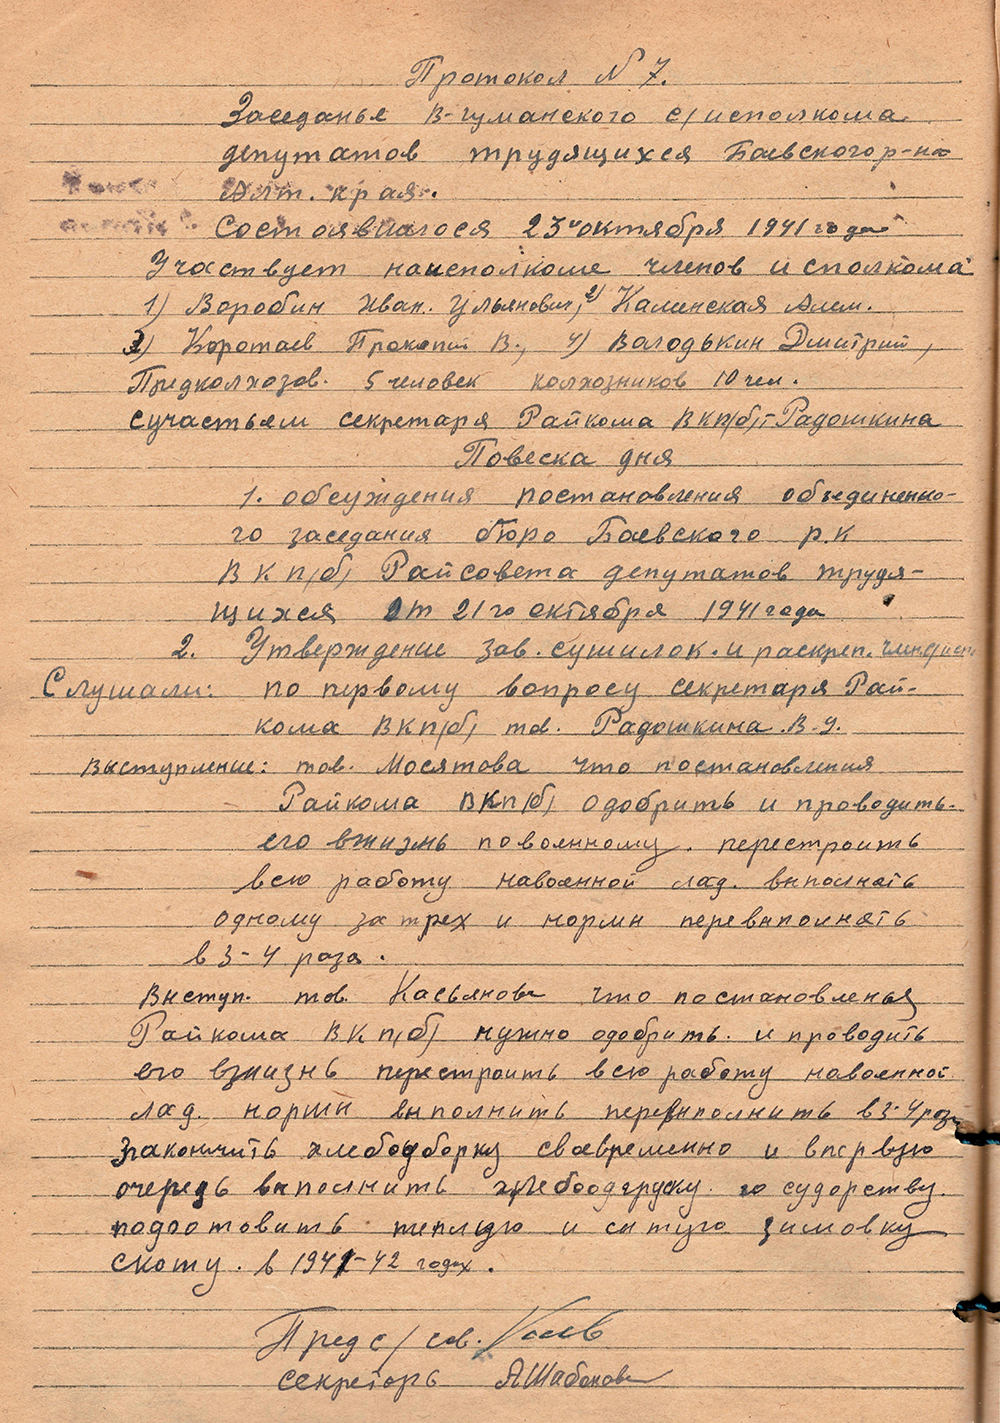 Протокол N 7.
Заседанье В-чуманского с/исполкома
депутатов трудящихся Баевского р-на
Алт. края.
Состоявшагося 23го октября 1941 года
Участвует наисполкоме членов исполкома
1) Воробин Иван. Ульянович, 2) Каменская Алек.
3) Коротаев Прокопий В., 4) Володькин Дмитрий,
Предколхозов. 5 человек колхозников 10 чел.
сучастьем секретаря Райкома ВКП(б) т Радошкина
Повеска дня
1. обсуждения постановления объединенно-
го заседания бюро Баевского р.к
ВКП(б) Райсовета депутатов трудя-
щихся от 21го октября 1941 года
2. Утверждение зав. сушилок. и раскреп.
Слушали: по первому вопросу секретаря Рай-
кома ВКП(б) тов. Радошкина
Выступление: тов. Мосятова что постановления
Райкома ВКП(б) одобрить и проводить
его вжизнь повоенному. перестроить
всю работу навоенной лад. выполнять
одному за трех и нормы перевыполнять
в 3-4 раза.
Выступ. тов. Касьянова что постановленья
Райкома ВКП(б) нужно одобрить. и проводить
его вжизнь перестроить всю работу навоенной
лад. нормы выполнить перевыполнить в 3-4 раза
Закончить хлебоуборку своевременно и впервую
очередь выполнить го сударству.
подготовить теплую и сытую зимовку
скоту. в 1941-42 годах.
Пред с/сов.
секретарь Я Шабанова